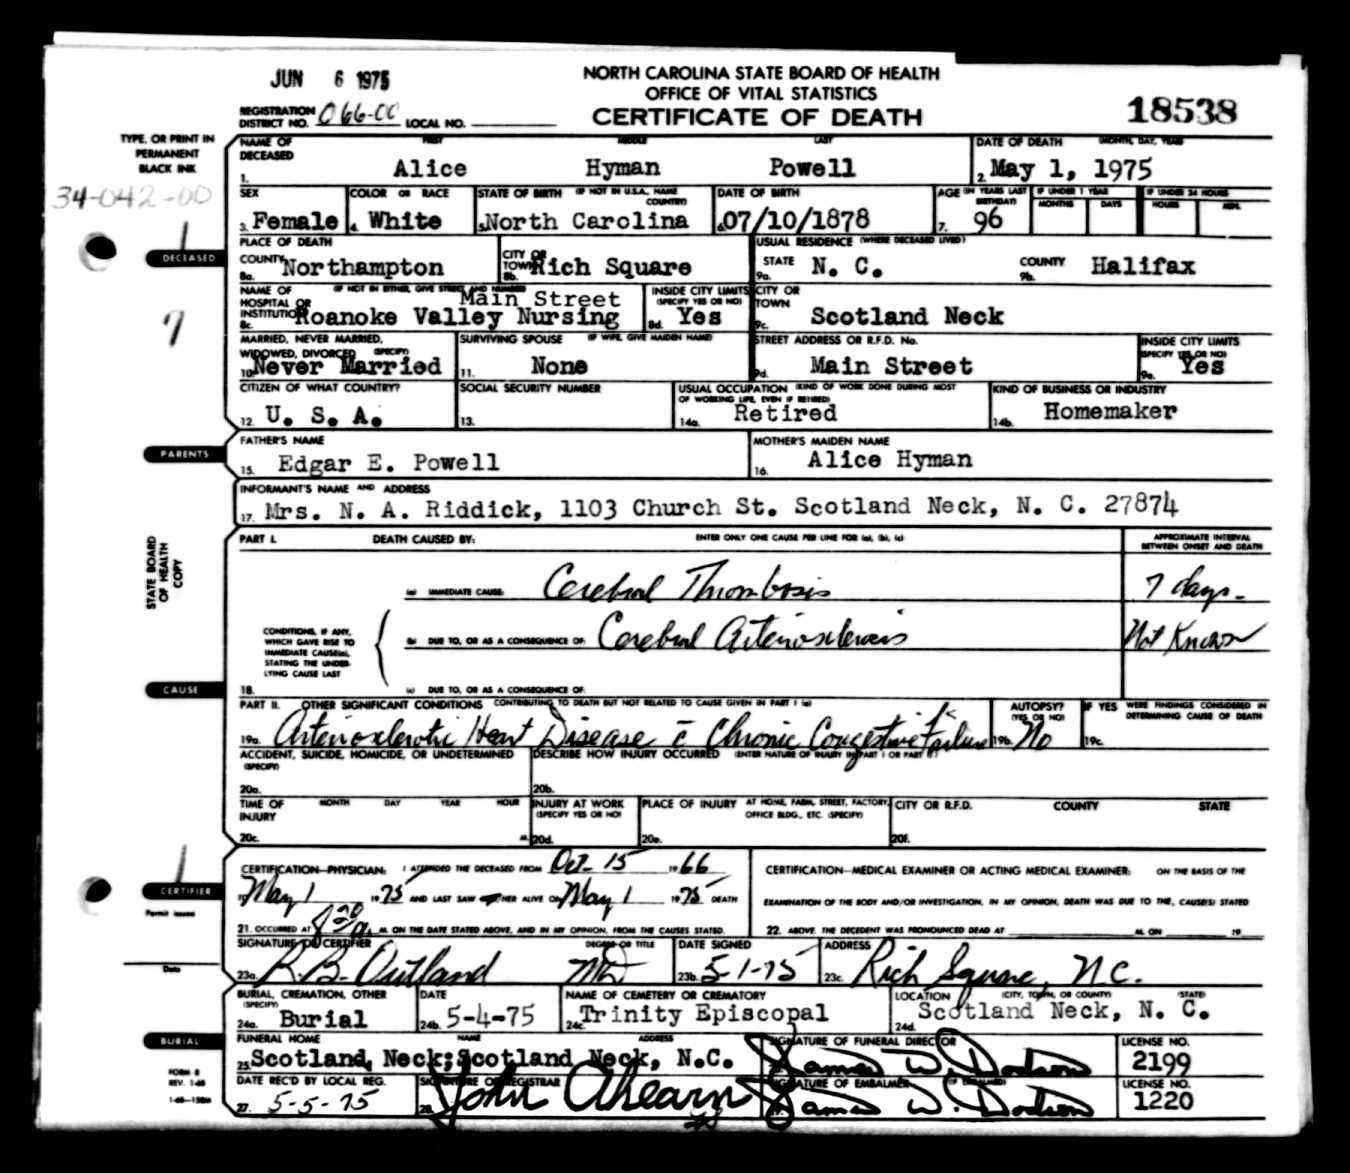 JUN 6 1975
NORTH CAROLINA STATE BOARD OF HEALTH
OFFICE OF VITAL STATISTICS
CERTIFICATE OF DEATH
18538
REGISTRATION DISTRICT NO. 066-00 LOCAL NO.
TYPE, OR PRINT IN
PERMANENT
BLACK INK
34-042-00
NAME OF DECEASED FIRST MIDDLE LAST DATE OF DEATH (MONTH, DAY, YEAR)
1. Alice Hyman Powell 2. May 1, 1975
SEX COLOR OR RACE STATE OF BIRTH (IF NOT IN U.S.A., NAME COUNTRY) DATE OF BIRTH AGE (IN YEARS LAST BIRTHDAY) IF UNDER 1 YEAR MONTHS DAYS IF UNDER 24 HOURS HOURS MIN.
3. Female 4. White 5. North Carolina 6. 07/10/1878 7. 96
DECEASED
PLACE OF DEATH USUAL RESIDENCE (WHERE DECEASED LIVED)
COUNTY 8a. Northampton CITY OR TOWN 8b. Rich Square STATE 9a. N. C. COUNTY 9b. Halifax
NAME OF HOSPITAL OR INSTITUTION (IF NOT IN EITHER, GIVE STREET AND NUMBER) Main Street
8c. Roanoke Valley Nursing INSIDE CITY LIMITS (SPECIFY YES OR NO) 8d. Yes CITY OR TOWN 9c. Scotland Neck
7
MARRIED, NEVER MARRIED, WIDOWED, DIVORCED (SPECIFY) SURVIVING SPOUSE (IF WIFE, GIVE MAIDEN NAME) STREET ADDRESS OR R.F.D. No. INSIDE CITY LIMITS (SPECIFY YES OR NO)
10. Never Married 11. None 9d. Main Street 9e. Yes
CITIZEN OF WHAT COUNTRY? SOCIAL SECURITY NUMBER USUAL OCCUPATION (KIND OF WORK DONE DURING MOST OF WORKING LIFE, EVEN IF RETIRED) KIND OF BUSINESS OR INDUSTRY
12. U. S. A. 13. 14a. Retired 14b. Homemaker
PARENTS
FATHER'S NAME MOTHER'S MAIDEN NAME
15. Edgar E. Powell 16. Alice Hyman
INFORMANT'S NAME AND ADDRESS
17. Mrs. N. A. Riddick, 1103 Church St. Scotland Neck, N. C. 27874
STATE BOARD OF HEALTH COPY
PART I. DEATH CAUSED BY: ENTER ONLY ONE CAUSE PER LINE FOR (a), (b), (c) APPROXIMATE INTERVAL BETWEEN ONSET AND DEATH
(a) IMMEDIATE CAUSE: Cerebral Thrombosis 7 days-
CONDITIONS, IF ANY, WHICH GAVE RISE TO IMMEDIATE CAUSE(a), STATING THE UNDERLYING CAUSE LAST
(b) DUE TO, OR AS A CONSEQUENCE OF: Cerebral Arteriosclerosis Not Known
CAUSE
18. (c) DUE TO, OR AS A CONSEQUENCE OF:
PART II. OTHER SIGNIFICANT CONDITIONS CONTRIBUTING TO DEATH BUT NOT RELATED TO CAUSE GIVEN IN PART I (a) AUTOPSY? (YES OR NO) IF YES WERE FINDINGS CONSIDERED IN DETERMINING CAUSE OF DEATH
19a. Arteriosclerotic Heart Disease c̄ Chronic Congestive Failure 19b. No 19c.
ACCIDENT, SUICIDE, HOMICIDE, OR UNDETERMINED (SPECIFY) DESCRIBE HOW INJURY OCCURRED (ENTER NATURE OF INJURY IN PART I OR PART II)
20a. 20b.
TIME OF INJURY MONTH DAY YEAR HOUR INJURY AT WORK (SPECIFY YES OR NO) PLACE OF INJURY AT HOME, FARM, STREET, FACTORY, OFFICE BLDG., ETC. (SPECIFY) CITY OR R.F.D. COUNTY STATE
20c. M. 20d. 20e. 20f.
CERTIFIER
CERTIFICATION—PHYSICIAN: I ATTENDED THE DECEASED FROM Oct- 15 1966
TO May 1 1975 AND LAST SAW HER ALIVE ON May 1 1975 DEATH
21. OCCURRED AT 8:20 a. M. ON THE DATE STATED ABOVE, AND IN MY OPINION, FROM THE CAUSES STATED.
CERTIFICATION—MEDICAL EXAMINER OR ACTING MEDICAL EXAMINER: ON THE BASIS OF THE
EXAMINATION OF THE BODY AND/OR INVESTIGATION, IN MY OPINION, DEATH WAS DUE TO THE, CAUSE(S) STATED
22. ABOVE. THE DECEDENT WAS PRONOUNCED DEAD AT M. ON 19
Permit issued
Date
SIGNATURE OF CERTIFIER DEGREE OR TITLE DATE SIGNED ADDRESS
23a. R.B. Outland MD 23b. 5-1-75 23c. Rich Square, N.C.
BURIAL, CREMATION, OTHER (SPECIFY) DATE NAME OF CEMETERY OR CREMATORY LOCATION (CITY, TOWN, OR COUNTY) (STATE)
24a. Burial 24b. 5-4-75 24c. Trinity Episcopal 24d. Scotland Neck, N. C.
BURIAL
FUNERAL HOME NAME ADDRESS SIGNATURE OF FUNERAL DIRECTOR LICENSE NO.
25. Scotland Neck; Scotland Neck, N.C. James W. Dodson 2199
DATE REC'D BY LOCAL REG. SIGNATURE OF REGISTRAR SIGNATURE OF EMBALMER (IF EMBALMED) LICENSE NO.
27. 5-5-75 28. John Ahearn James W. Dodson 1220
FORM 8
REV. 1-68
1-68—150M